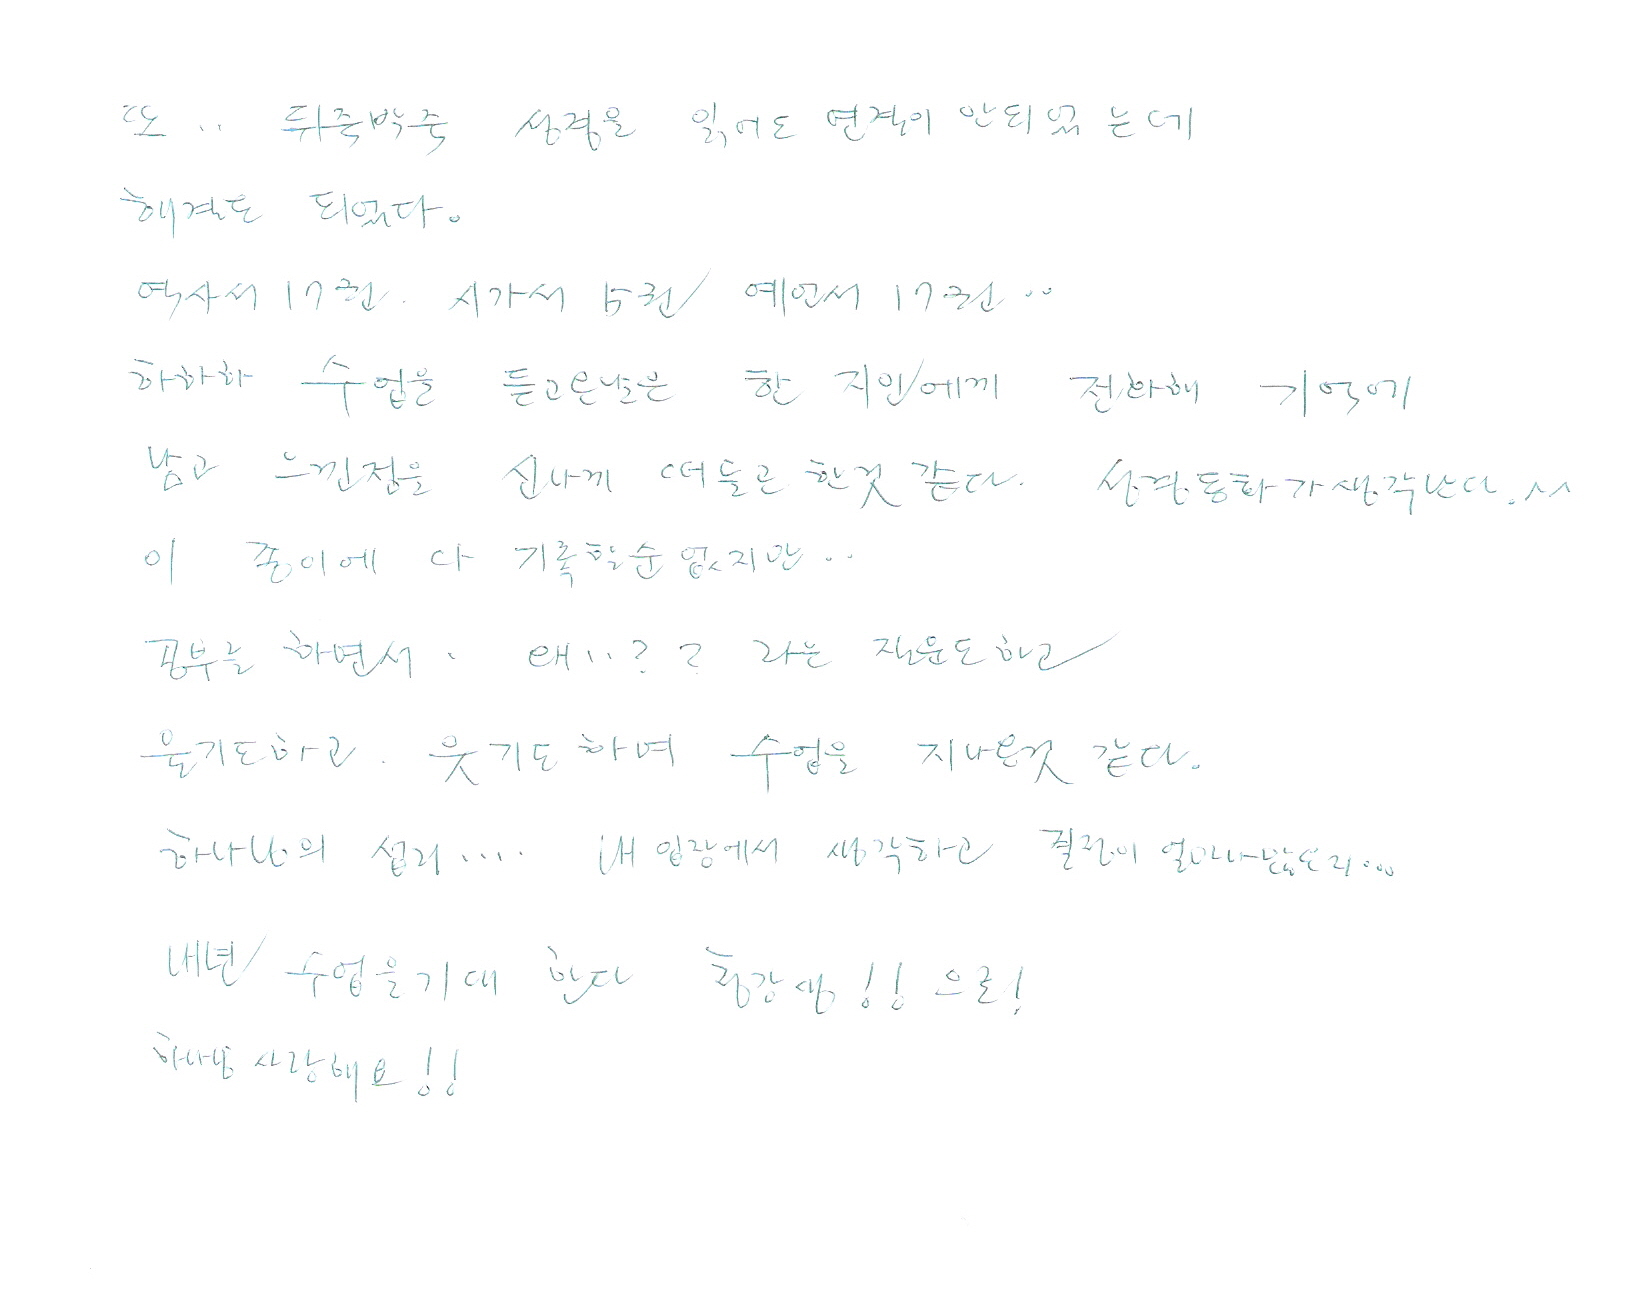 또.. 뒤죽박죽 성경을 읽어도 연결이 안되었는데
해결도 되었다.
역사서 17권. 시가서 5권/ 예언서 17권..
하하하 수업을 듣고온날은 한 지인에게 전화해 기억에
남고 느낀점을 신나게 떠들곤 한것 같다. 성경동화가생각난다.^^
이 종이에 다 기록할순 없지만..
공부를 하면서. 왜..?? 라는 질문도하고
울기도하고. 웃기도 하며 수업을 지나온것 같다.
하나님의 섭리.... 내 입장에서 생각하고 결정이 얼마나많은지...
내년/ 수업을기대 한다 청강생!! 으로!
하나님 사랑해요!!